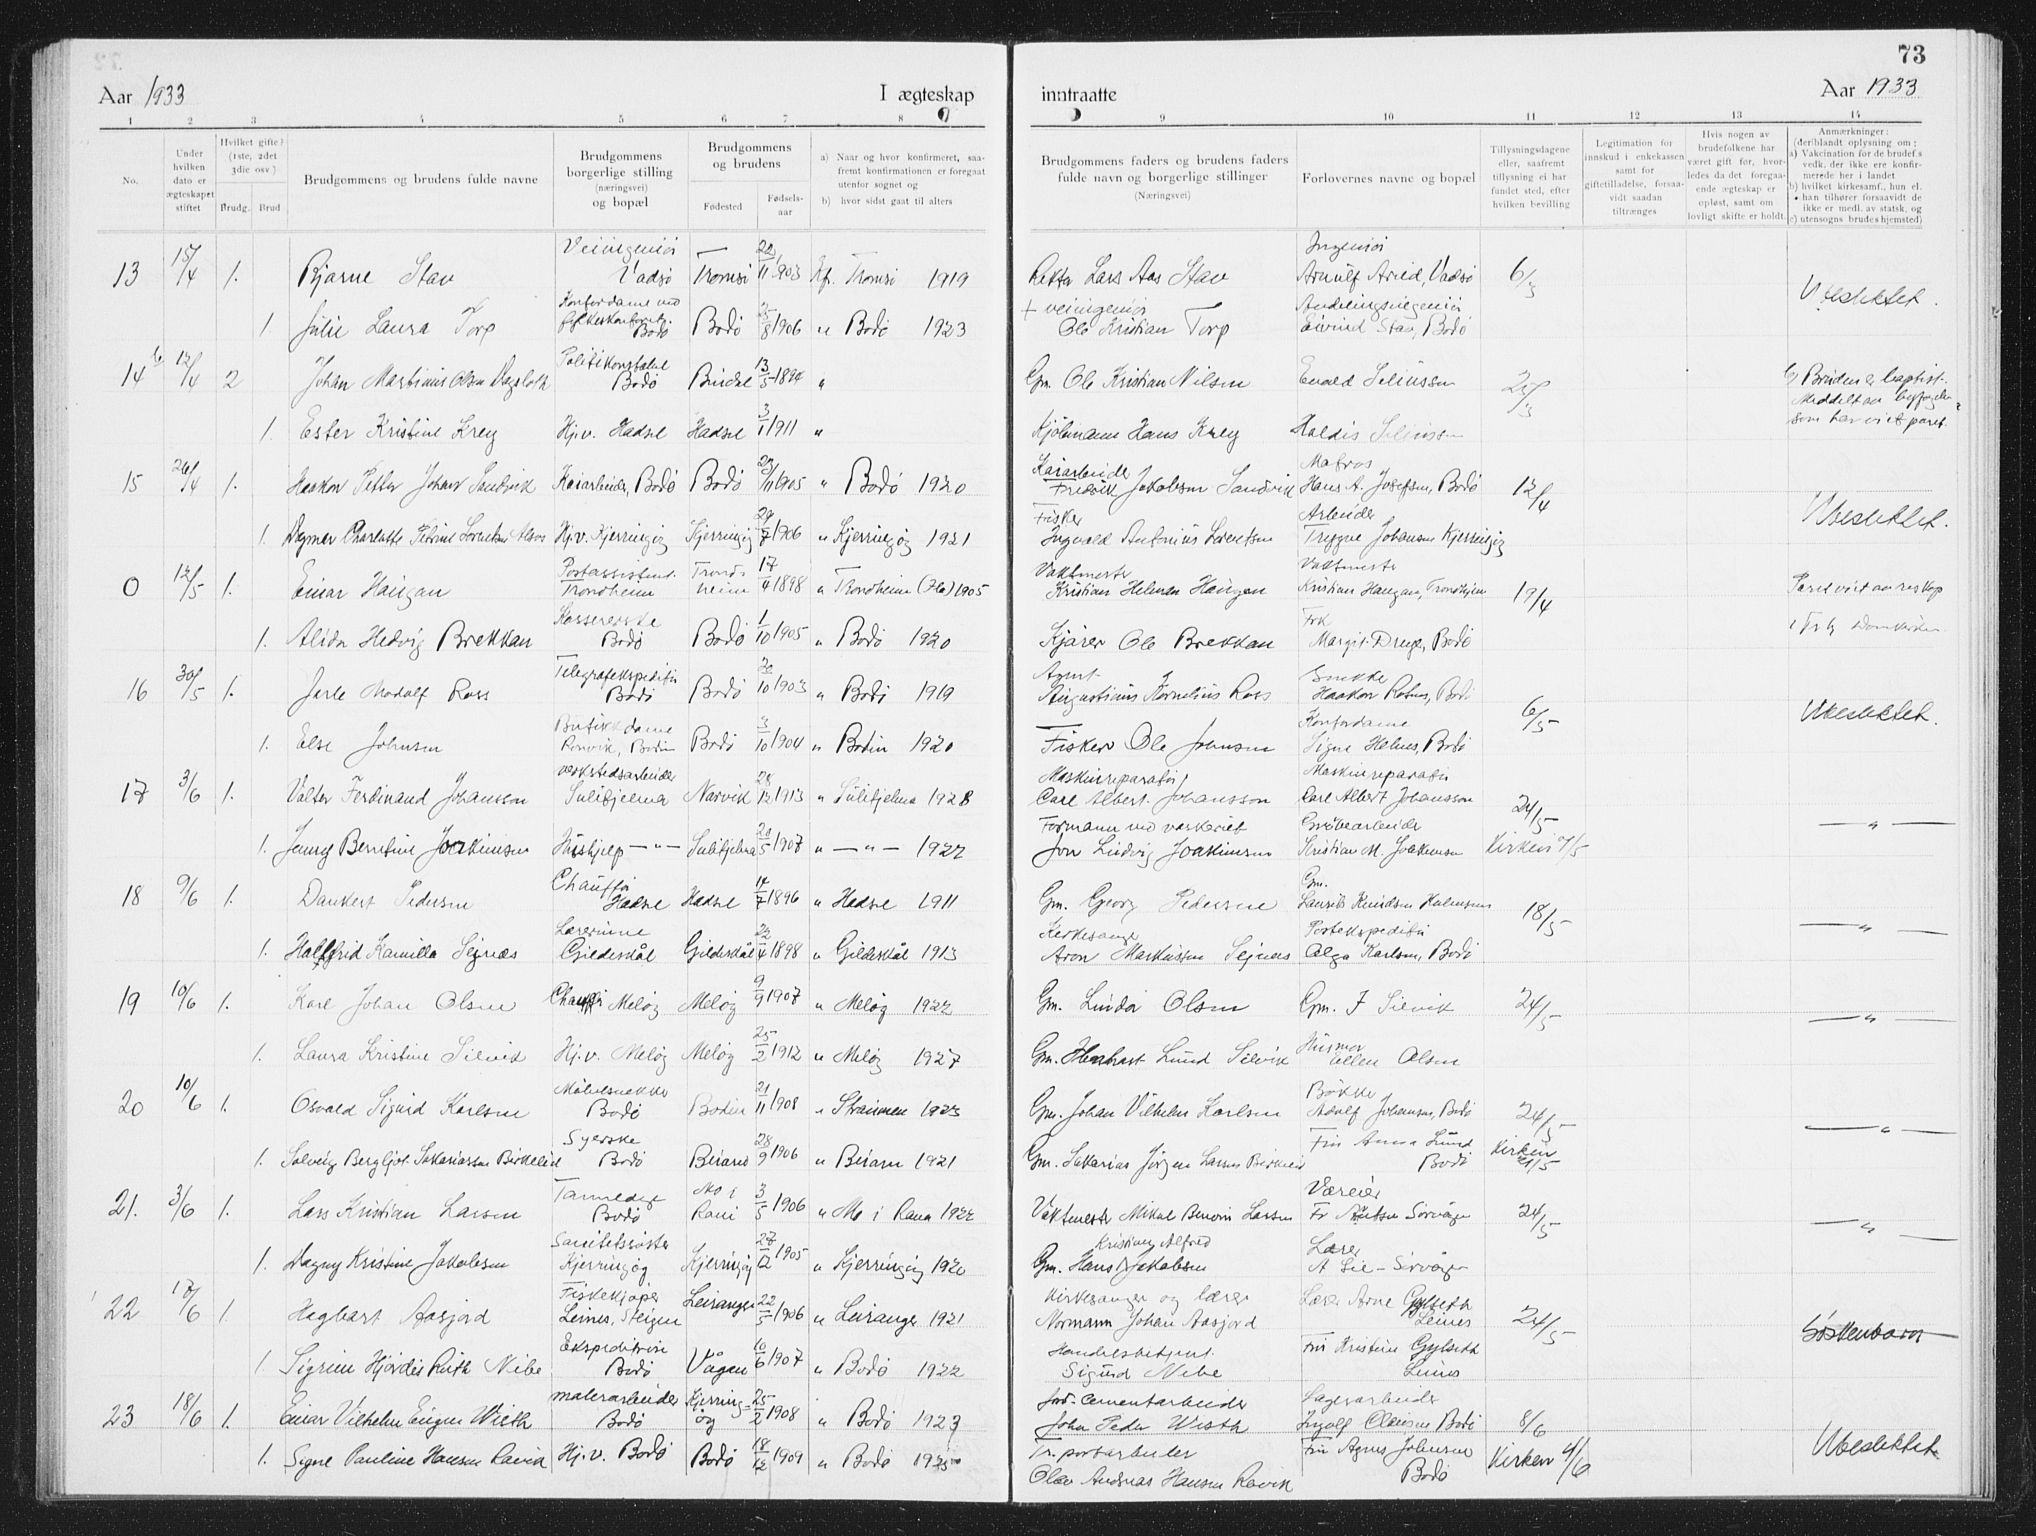 73
Aar 1933
I ægteskap
inntraatte
Aar 1933
1 2 3 4 5 6 7 8 9 10 11 12 13 14
No.
Under hvilken dato er ægteskapet stiftet
Hvilket gifte? (1ste, 2det 3die osv.)
Brudg. Brud
Brudgommens og brudens fulde navne
Brudgommens borgerlige stilling (næringsvei) og bopæl
Brudgommens og brudens
Fødested
Fødsels-aar
a) Naar og hvor konfirmeret, saafremt konfirmationen er foregaat utenfor sognet og
b) hvor sidst gaat til alters
Brudgommens faders og brudens faders fulde navn og borgerlige stillinger
(Næringsvei)
Forlovernes navne og bopæl
Tillysningsdagene eller, saafremt tillysning ei har fundet sted, efter hvilken bevilling
Legitimation for innskud i enkekassen samt for giftetilladelse, forsaavidt saadan tiltrænges
Hvis nogen av brudefolkene har været gift før, hvorledes da det foregaaende ægteskap er opløst, samt om lovligt skifte er holdt.
Anmærkninger: (deriblandt oplysning om: a) Vakcination for de brudef.s vedk. der ikke ere konfirmerede her i landet b) hvilket kirkesamf., hun el. han tilhører forsaavidt de ikke er medl. av statsk. og c) utensogns brudes hjemsted)
13 15/4 1. Bjarne Stav Veiingeniør Vadsø Tromsø 22/11 1903 Kf. Tromsø 1919 Lars Aas Stav Ingeniør Arnulf Arild, Vadsø 6/3
1. Julie Laura Torp Kontordame ved Bodø Bodø 1906 " Bodø 1923 + veiingeniør Ole Kristian Torp Avdelingsingeniør Eivind Stav, Bodø Ubeslektet.
14 12/4 2 Johan Martinius Olsen Dagsloth Politikonstabel Bodø Bindal 13/5 1894 " Gm. Ole Kristian Nilsen Evald Seliussen b) Bruden er baptist.
1. Ester Kristine Krey Hj.v. Hadsel Hadsel 3/1 1911 " Hans Krey Haldis som har viet paret.
15 26/4 1. Haakon Petter Johan Sandvik Kaiarbeider, Bodø Bodø 1905 " Bodø 1920 Kaiarbeider Fredrik Jakobsen Sandvik Matros Hans A. Josefsen, Bodø 12/4
1. Dagmar Charlotte Petrine Lorentsen Hj.v. Kjerringøy Kjerringøy 29/7 1906 " Kjerringøy 1921 Fisker Ingvald Antonius Lorentsen Arbeider Trygve Johansen Kjerringøy Ubeslektet.
0 12/5 1. Einar Haugan Postassistent. Trondheim Trondheim 17/4 1898 " Trondheim 1905 Vaktmester Kristian Haugan Vaktmester Kristian Haugan, Trondhjem 19/4
1. Alida Hedvig Brekkan Kassererske Bodø Bodø 1/10 1905 " Bodø 1920 Kjører Ole Brekkan Frk Margit Bodø
16 30/5 1. Jarle Modolf Ross Telegrafekspeditør Bodø Bodø 20/10 1903 " Bodø 1919 Agent Augustinus Kornelius Ross Snekker Haakon
1. Else Johnsen Butikkdame Rønvik, Bodin Bodø 3/10 1904 " Bodin 1920 Fisker Ole Johnsen Kontordame Signe Helnes, Bodø 6/5 Ubeslektet.
17 3/6 1. Valter Ferdinand Johansson verkstedsarbeider Sulitjelma Narvik 1913 " Sulitjelma 1928 Maskinreparatør Carl Albert Johansson Maskinreparatør Carl Albert Johansson 24/5
1. Jenny Berntine Joakimsen Hushjelp — " — Sulitjelma 1907 " — " — 1922 Formann ved vaskeriet Jon Ludvig Joakimsen Grubearbeider Kristian M. Joakimsen Kirken 7/5 — " —
18 9/6 1. Dankert Pedersen Chauffør Hadsel Hadsel 14/7 1896 " Hadsel 1911 Gm. Georg Pedersen Gm. Laurits Knudsen 18/5
1. Hallfrid Kamilla Seines Lærerinne Gildeskål Gildeskål 1898 " Gildeskål 1913 Kirkesanger Aron Markussen Seines Postekspeditør Olga Karlsen, Bodø — " —
19 10/6 1. Karl Johan Olsen Chauffør Meløy Meløy 9/9 1907 " Meløy 1922 Gm. Lindor Olsen Gm. J Selvik 24/5
1. Laura Kristine Selvik Hj.v. Meløy Meløy 25/2 1912 " Meløy 1927 Gm. Lund Selvik Husmor Ellen Olsen — " —
20 10/6 1. Osvald Sigurd Karlsen Møbelsnekker Bodø Bodin 21/11 1908 " Straumen 1923 Gm. Johan Vilhelm Karlsen Bøkker Adolf Johansen, Bodø 24/5
1. Solveig Bergljot Sakariassen Birkelid Syerske Bodø Beiarn 28/9 1906 " Beiarn 1921 Gm. Sakarias Jørgen Larsen Birkelid Fru Anna Lund Bodø Kirken 21/5 — " —
21. 3/6 1. Lars Kristian Larsen Tannlege Bodø Mo i Rana 3/5 1906 " Mo i Rana 1922 Vaktmester Mikal Benoni Larsen Væreier Sørvågen 24/5
1. Dagny Kristine Jakobsen Sanitetssøster Kjerringøy Kjerringøy 27/12 1905 " Kjerringøy 1920 Gm. Hans Kristian Alfred Jakobsen Lærer A Lie - Sørvågen — " —
22 17/6 1. Hagbart Aasjord Fiskekjøper Leines, Steigen Leiranger 22/5 1906 " Leiranger 1921 Kirkesanger og lærer Normann Johan Aasjord Lærer Arne Gylseth Leines 24/5 Søskenbarn
1. Sigrun Hjørdis Ruth Nibe Ekspeditrise Bodø Vågan 10/6 1907 " Bodø 1922 Handelsbetjent. Sigurd Nibe Fru Kristine Gylseth Leines
23 18/6 1. Einar Vilhelm Eugen Wisth malerarbeider Bodø Kjerringøy 25/2 1908 " Bodø 1923 Jord- Cementarbeider John Peder Wisth Lagerarbeider Ingolf Bodø 8/6
1. Signe Pauline Hansen Ravik Hj.v. Bodø Bodø 18/12 1909 " Bodø 1925 Tr.portarbeider Olav Andreas Hansen Ravik Fru Agnes Johnsen Bodø Kirken 4/6 Ubeslektet